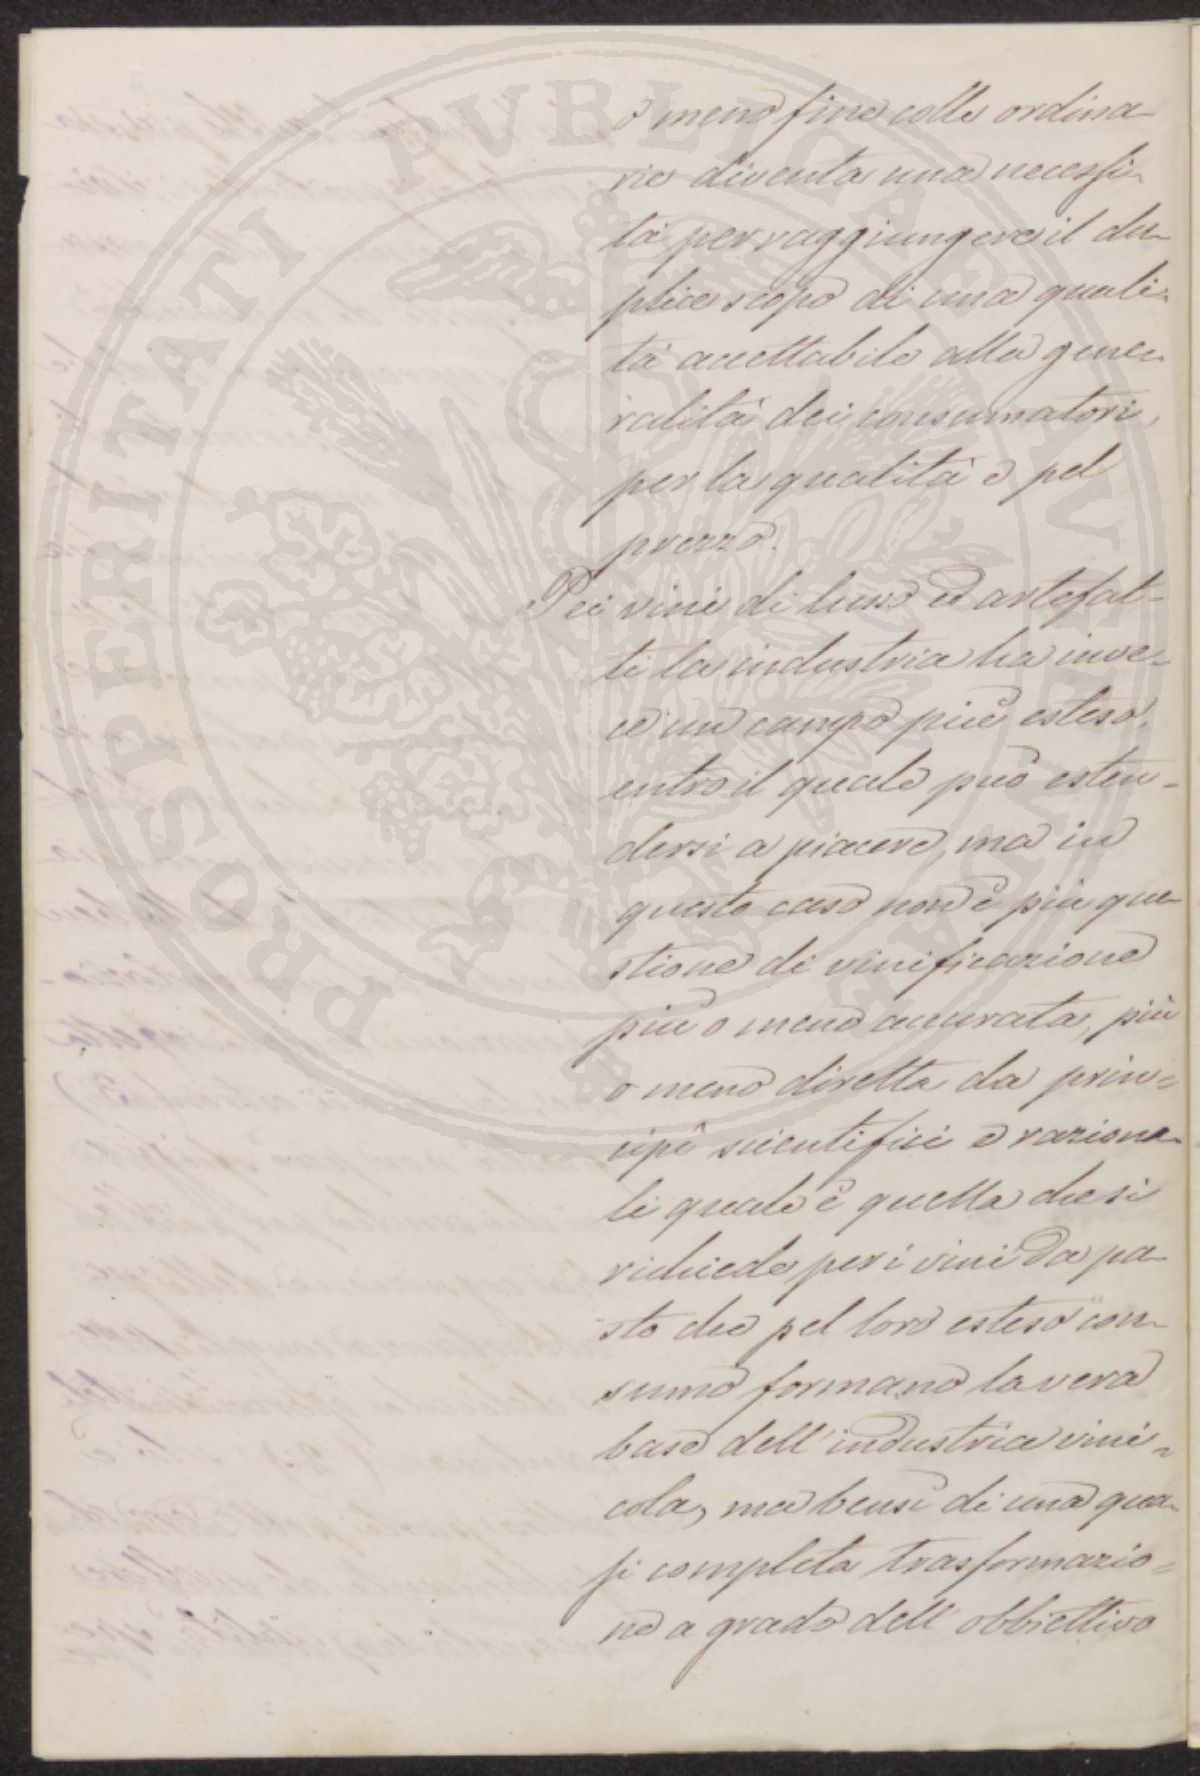 o meno fine colle ordina-
rie diventa una necessi-
tà per raggiungere il du-
plice scopo di una quali-
tà accettabile alla gene-
ralità dei consumatori,
per la qualità e pel
prezzo.
Pei vini di lusso ed artefat-
ti la industria ha inve-
ce un campo più esteso,
entro il quale può esten-
dersi a piacere, ma in
questo caso non è più que-
stione di vinificazione
più o meno accurata, più
o meno diretta da prin-
cipî scientifici e raziona-
li quale è quella che si
richiede per i vini da pa-
sto che pel loro esteso con-
sumo formano la vera
base dell'industria vini-
cola, ma bensì di una qua-
si completa trasformazio-
ne a grado dell'obbiettivo
PROSPERITATI PVBLICAE